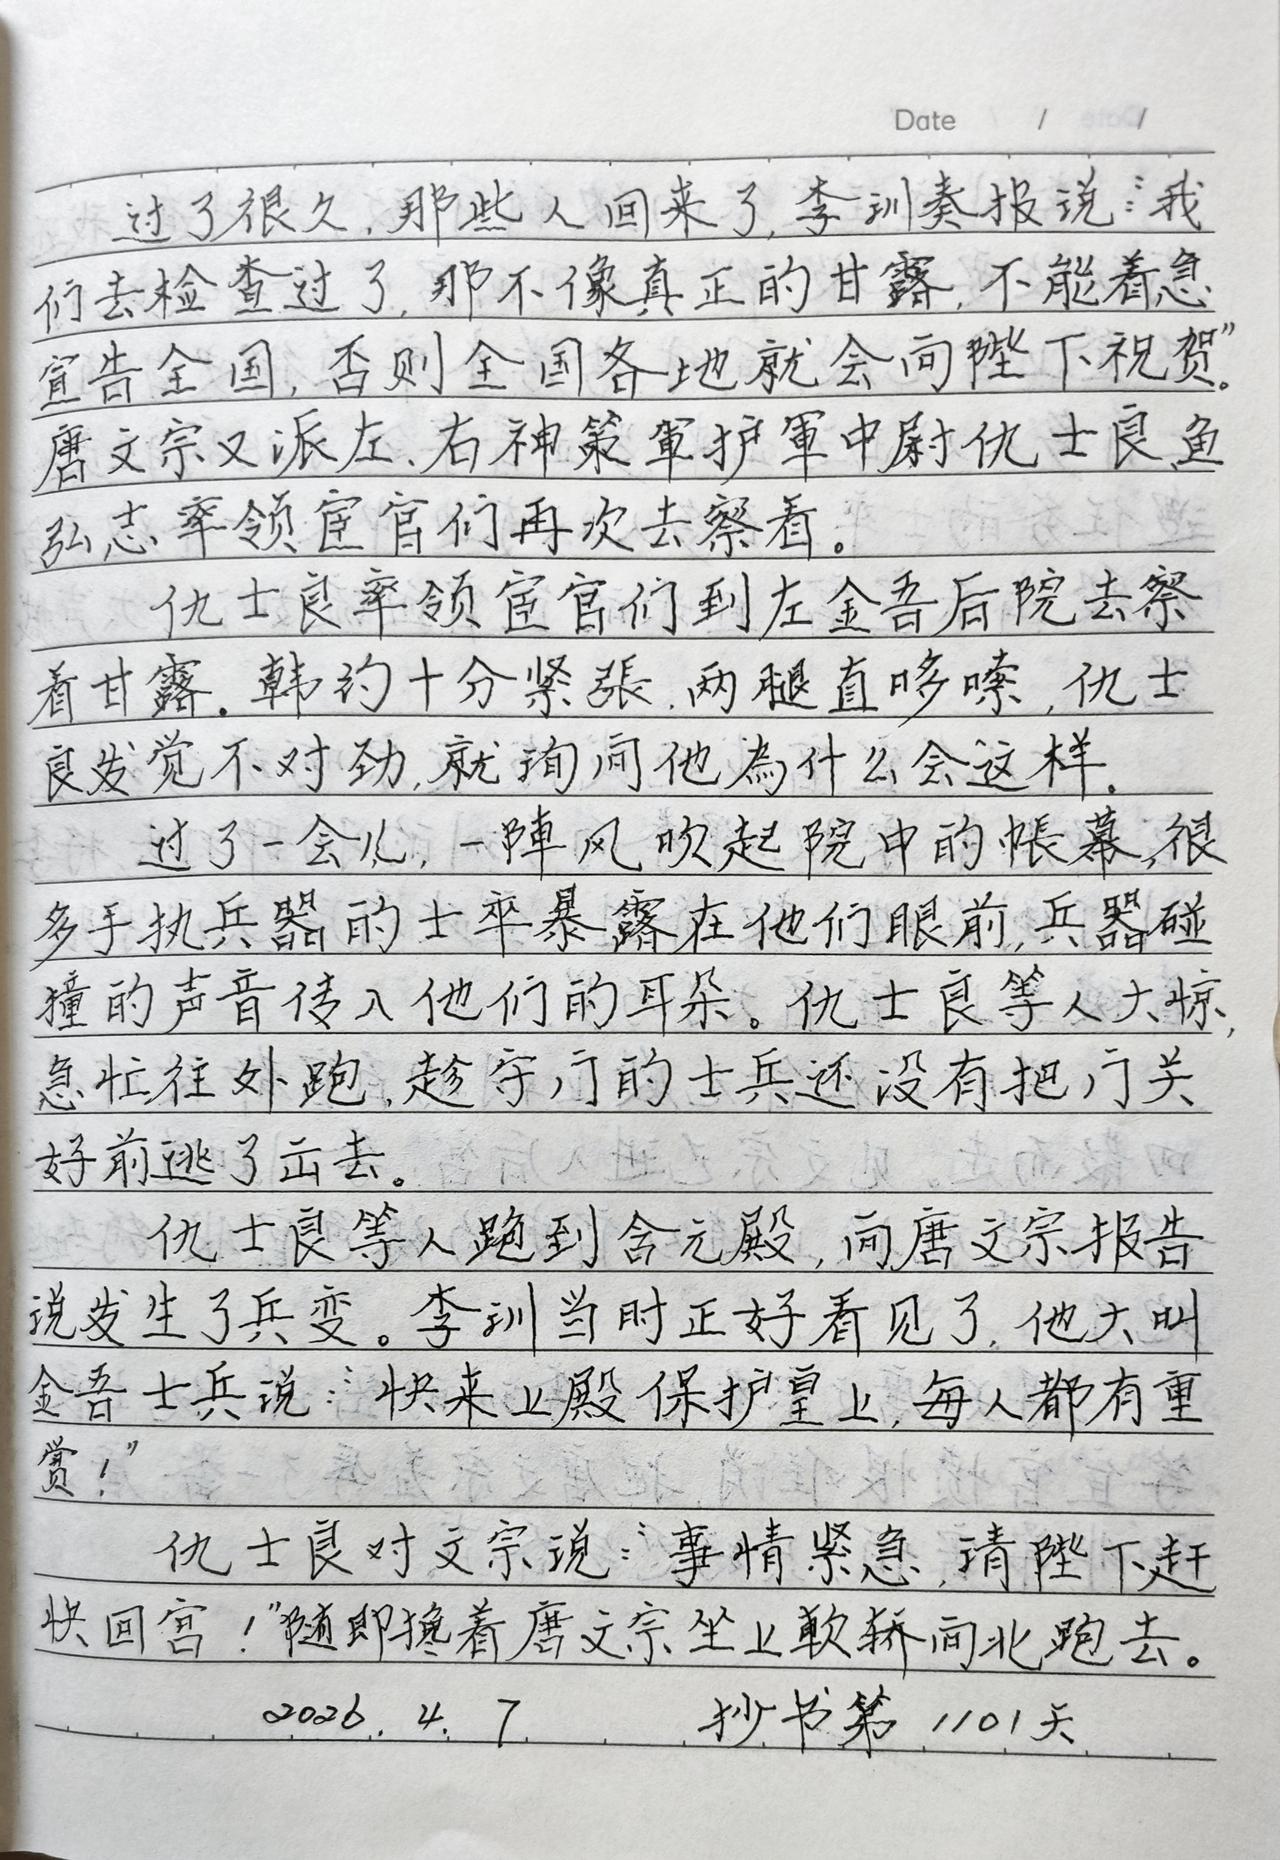 Date / /
过了很久,那些人回来了,李训奏报说:“我
们去检查过了,那不像真正的甘露,不能着急
宣告全国,否则全国各地就会向陛下祝贺。”
唐文宗又派左、右神策軍护軍中尉仇士良、鱼
弘志率领宦官们再次去察看。
仇士良率领宦官们到左金吾后院去察
看甘露。韩约十分紧張,两腿直哆嗦,仇士
良发觉不对劲,就询问他為什么会这样。
过了一会儿,一陣风吹起院中的帳幕,很
多手执兵器的士卒暴露在他们眼前,兵器碰
撞的声音传入他们的耳朵。仇士良等人大惊,
急忙往外跑,趁守门的士兵还没有把门关
好前逃了出去。
仇士良等人跑到含元殿,向唐文宗报告
说发生了兵变。李训当时正好看见了,他大叫
金吾士兵说:“快来上殿保护皇上,每人都有重
赏!”
仇士良对文宗说:“事情紧急,请陛下赶
快回宫!”随即搀着唐文宗坐上軟轿向北跑去。
2026.4.7 抄书第1101天